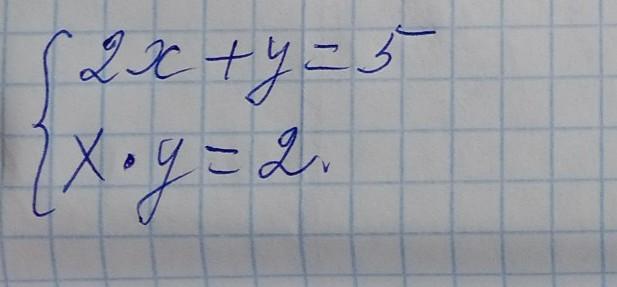 2x + y = 5
x · y = 2.